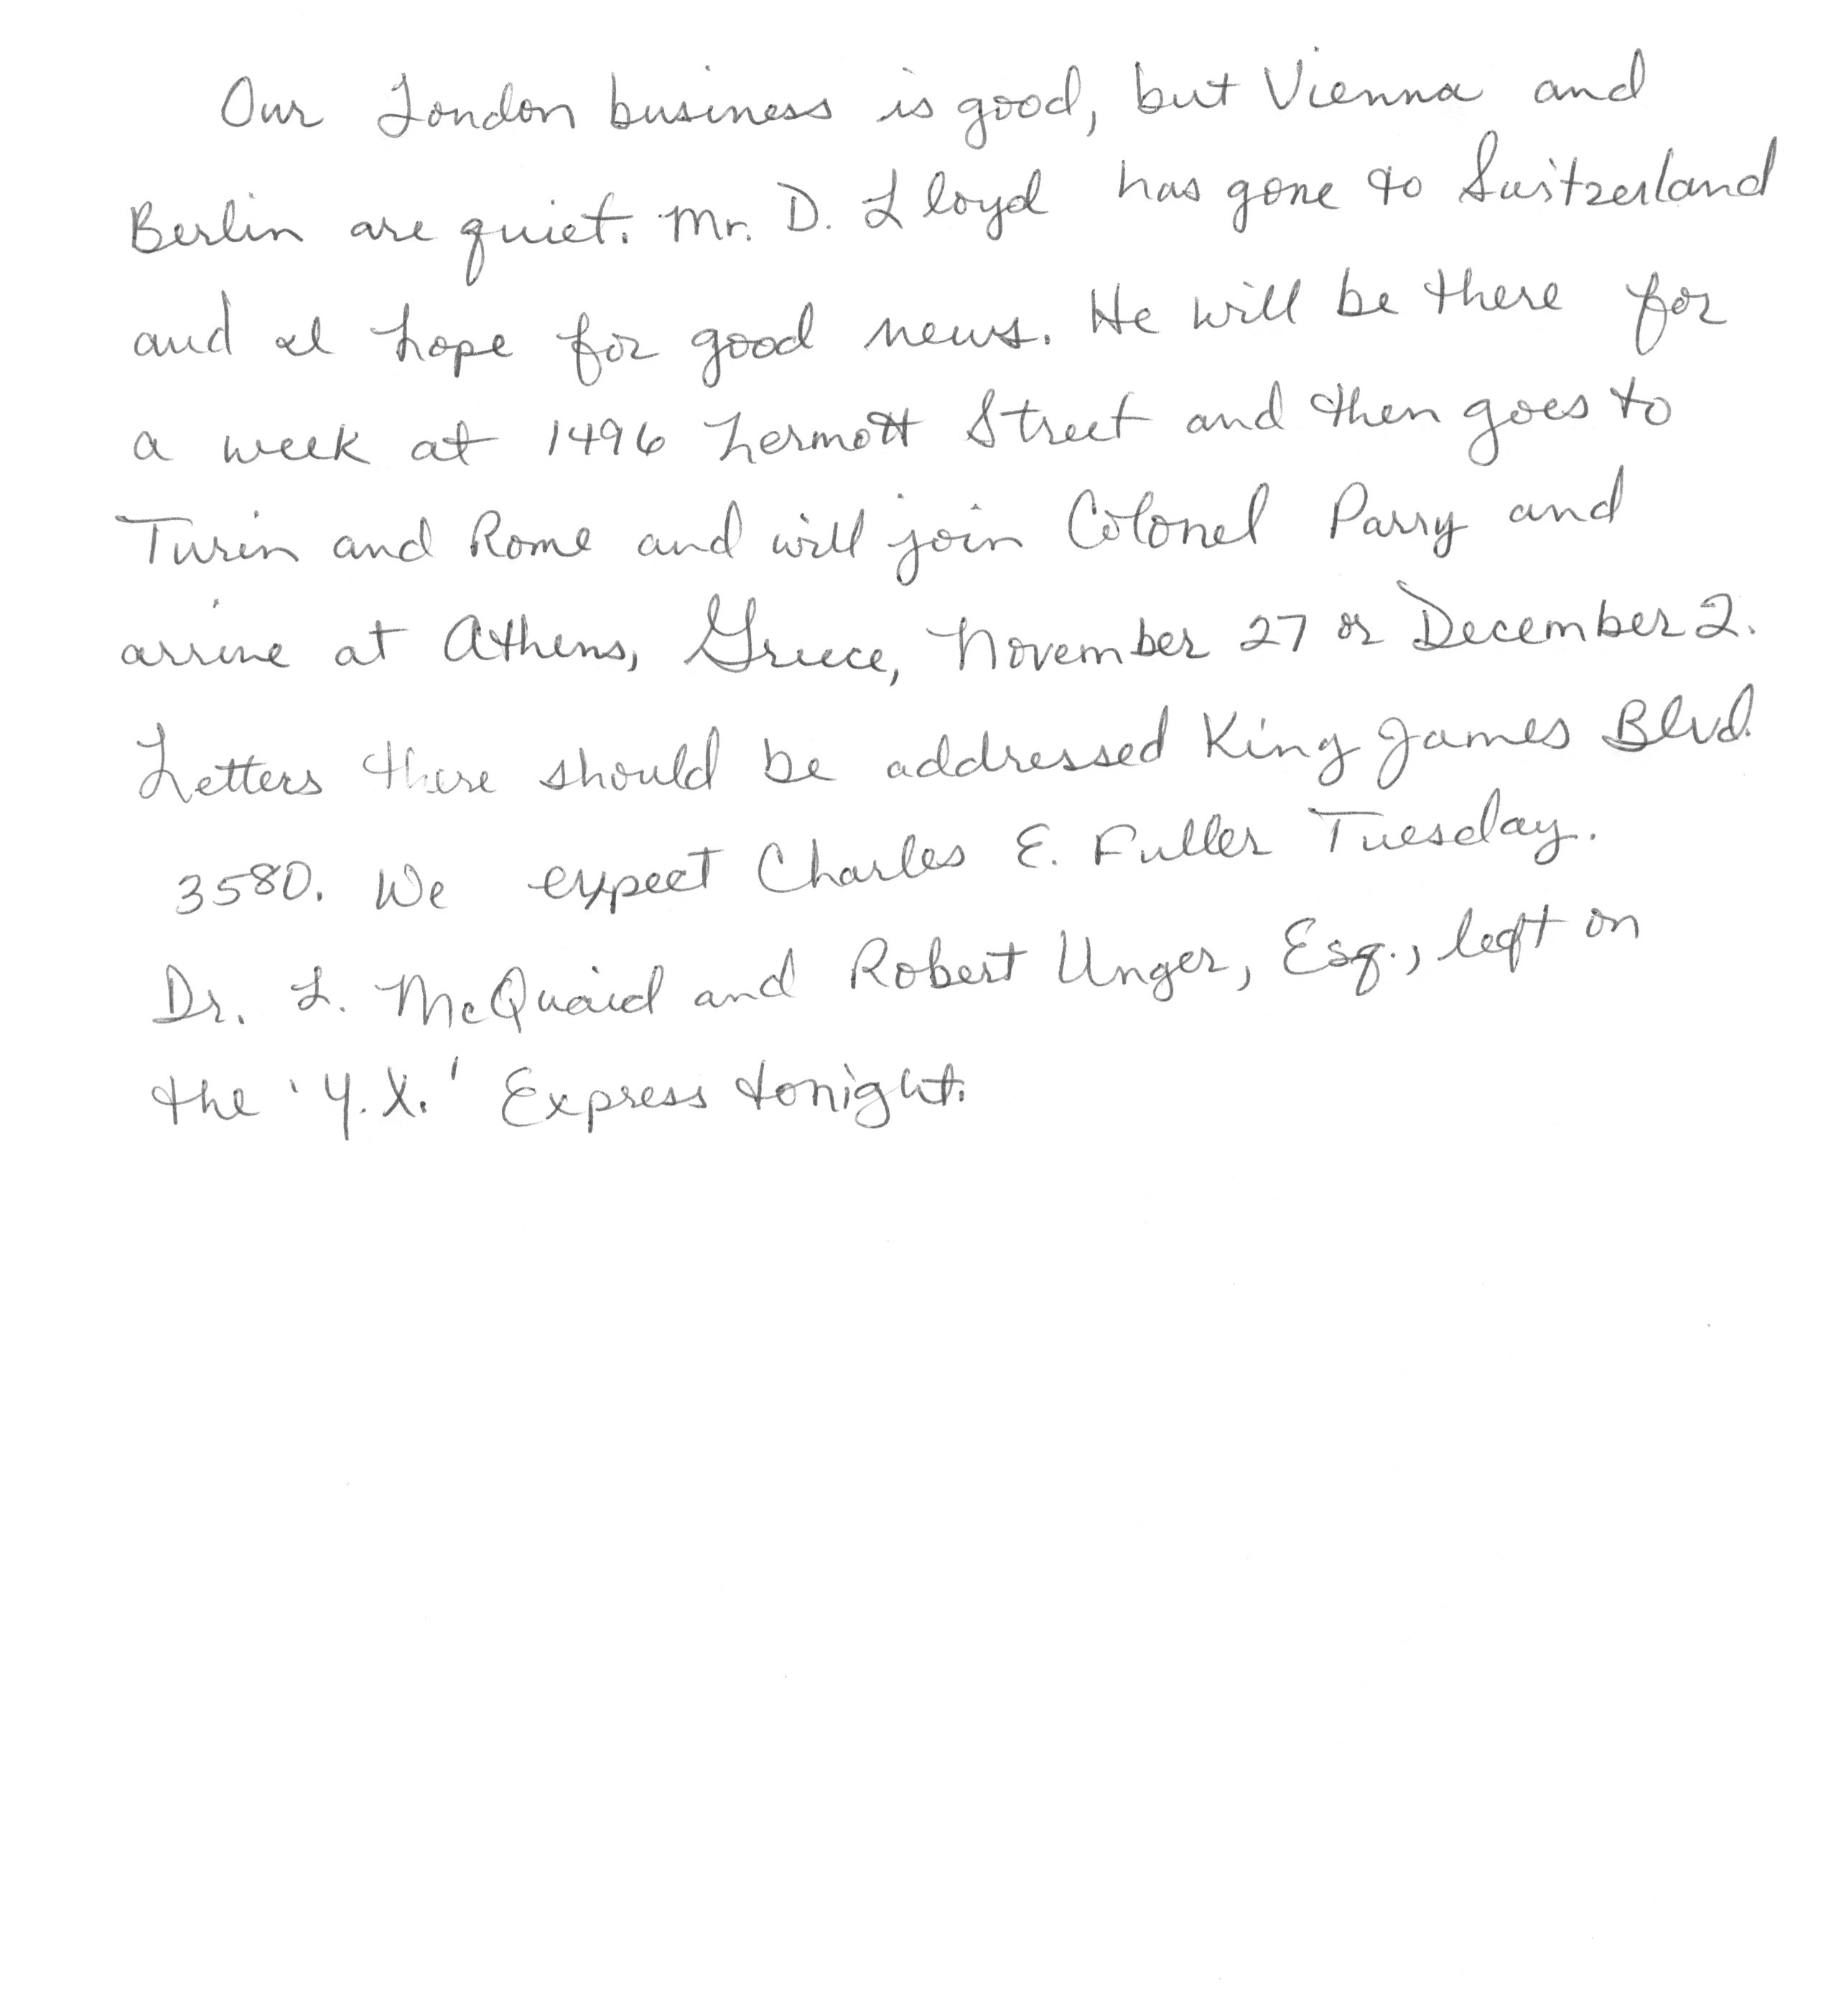 Our London business is good, but Vienna and
Berlin are quiet. Mr. D. Lloyd has gone to Switzerland
and I hope for good news. He will be there for
a week at 1496 Zermott Street and then goes to
Turin and Rome and will join Colonel Parry and
arrive at Athens, Greece, November 27 or December 2.
Letters there should be addressed King James Blvd.
3580. We expect Charles E. Fuller Tuesday.
Dr. L. McQuaid and Robert Unger, Esq., left on
the 'Y.X.' Express tonight.